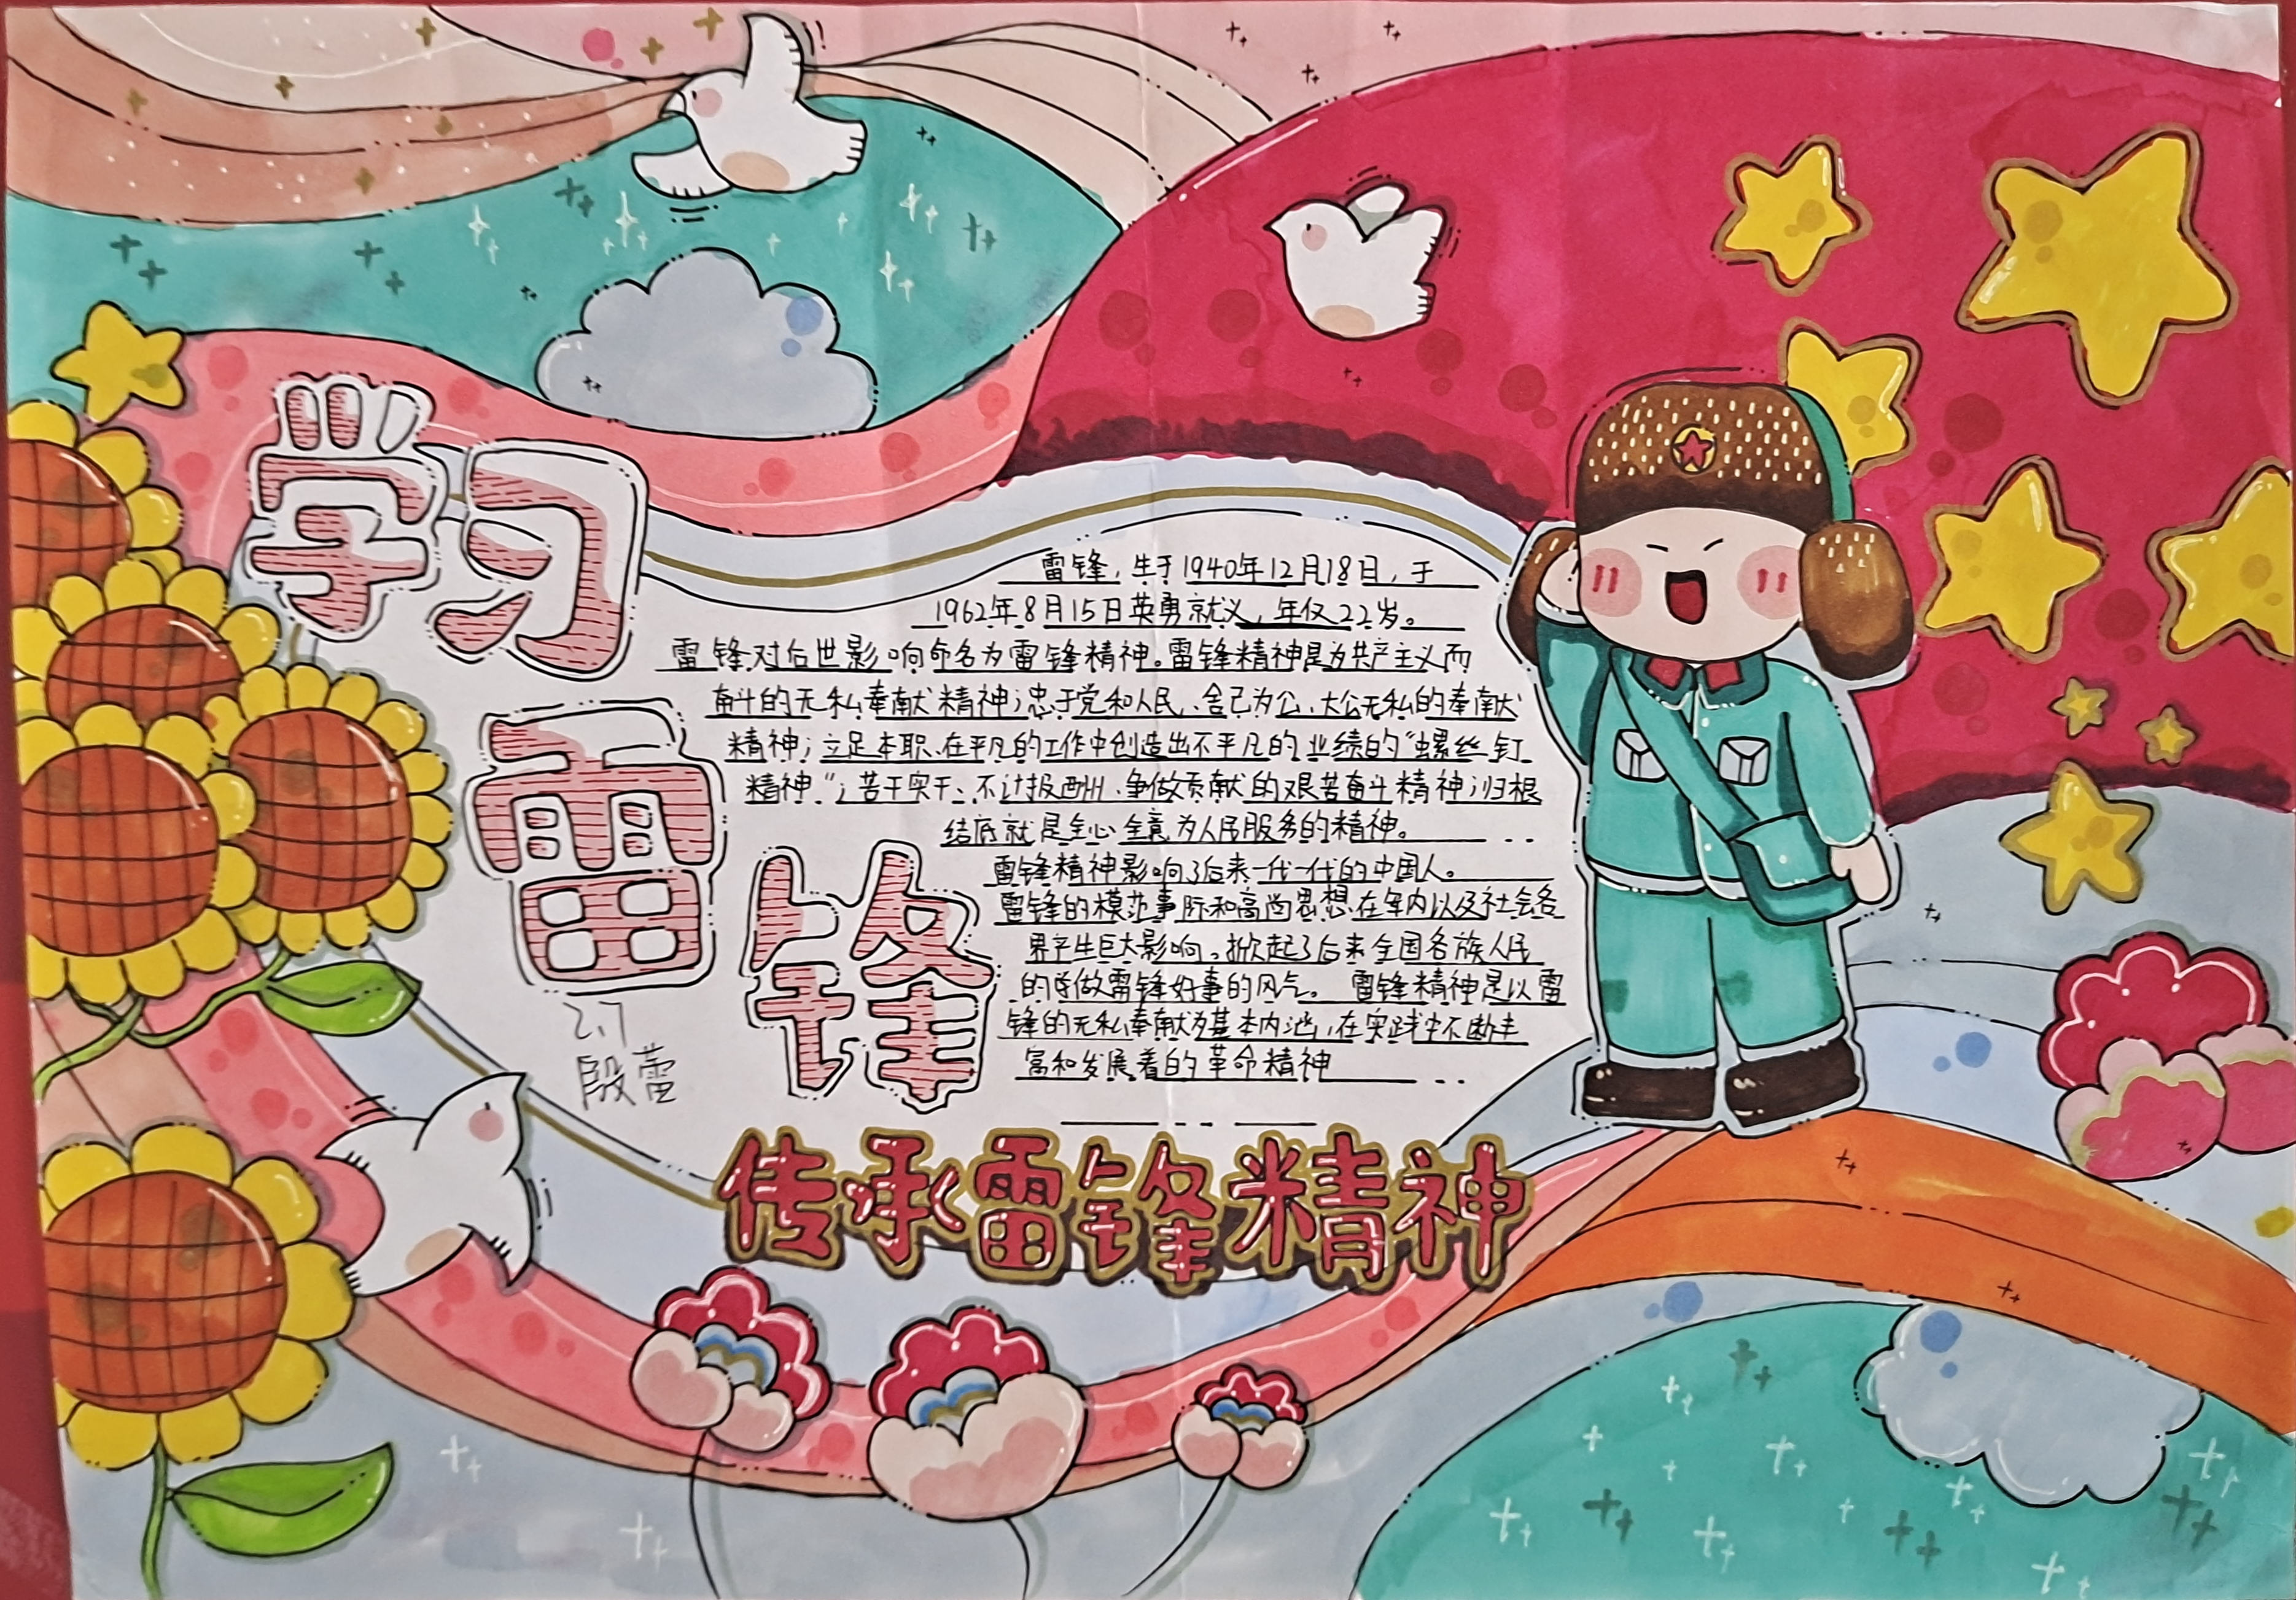 学习
雷
锋
雷锋,生于1940年12月18日,于
1962年8月15日英勇就义,年仅22岁。
雷锋对后世影响命名为雷锋精神。雷锋精神是为共产主义而
奋斗的无私奉献精神;忠于党和人民、舍己为公、大公无私的奉献
精神;立足本职、在平凡的工作中创造出不平凡的业绩的“螺丝钉
精神”;苦干实干、不计报酬、争做贡献的艰苦奋斗精神;归根
结底就是全心全意为人民服务的精神。
雷锋精神影响了后来一代一代的中国人。
雷锋的模范事际和高尚思想在军内以及社会各
界产生巨大影响。掀起了后来全国各族人民
的学做雷锋好事的风气。 雷锋精神是以雷
锋的无私奉献为基本内涵,在实践中不断丰
富和发展着的革命精神
2.7
段蕾
传承雷锋精神